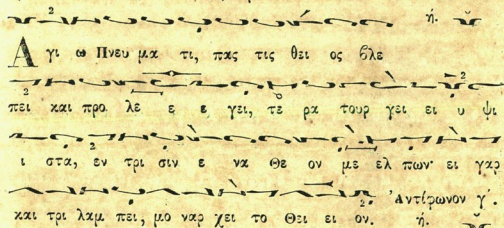 ή.
Α γι ω Πνευ μα τι, πας τις θει ος βλε
πει και προ λε ε ε γει, τε ρα τουρ γει ει υ ψι
ι στα, εν τρι σιν ε να Θε ον με ελ πων· ει γαρ
Ἀντίφωνον γ΄.
και τρι λαμ πει, μο ναρ χει το Θει ει ον. ή.